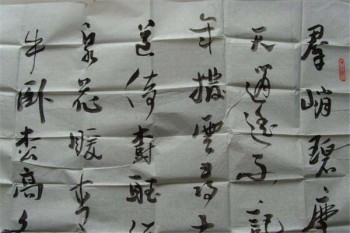 羣峭碧摩
天逍遥不記
年撥雲尋古
道倚樹聽流
泉花暖青
牛卧松高